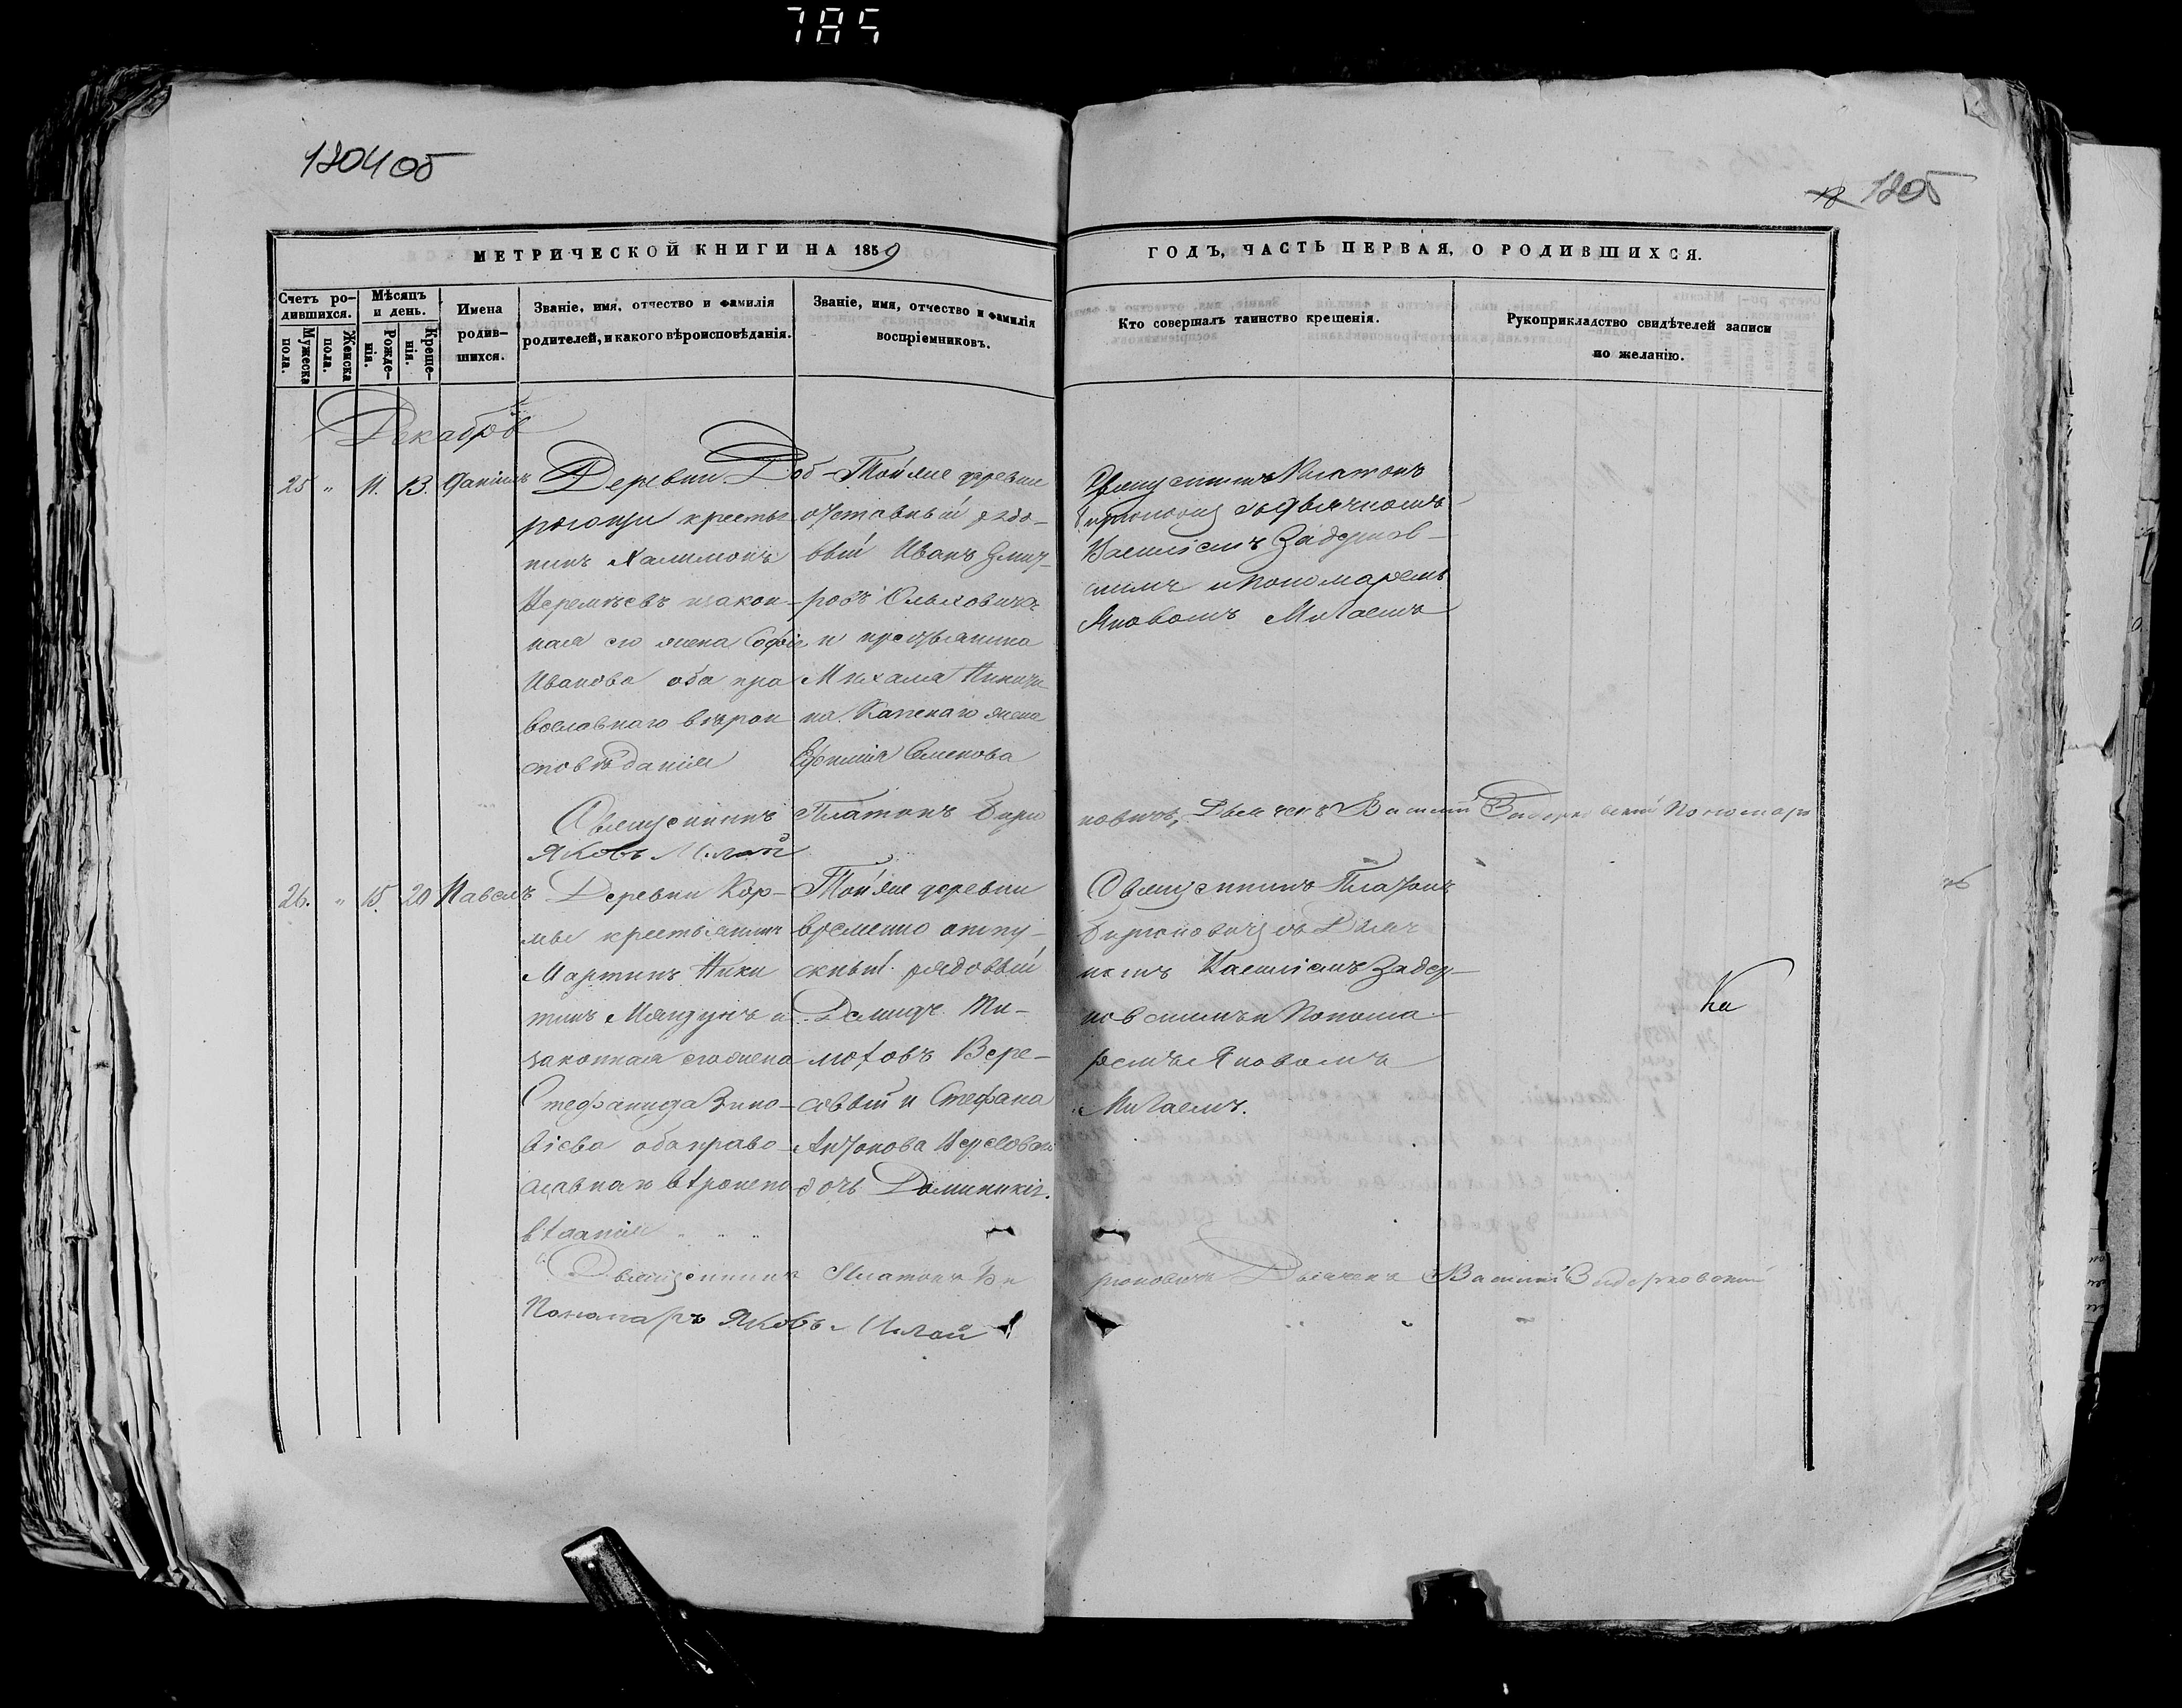 785
1204 об
18 1205
МЕТРИЧЕСКОЙ КНИГИ НА 1859
ГОДЪ, ЧАСТЬ ПЕРВАЯ, О РОДИВШИХСЯ.
Счетъ ро-
дившихся.
Мужеска
пола.
Женска
пола.
Мѣсяцъ
и день.
Рожде-
нія.
Креще-
нія.
Имена
родив-
шихся.
Званіе, имя, отчество и фамилія
родителей, и какого вѣроисповѣданія.
Званіе, имя, отчество и фамилія
воспріемниковъ.
Кто совершалъ таинство крещенія.
Рукоприкладство свидѣтелей записи
по желанію.
Декабрь
25 " 11. 13. Даніилъ
Деревни Доб-
рогощи кресть-
нинъ Халимонъ
Веремѣевъ и закон-
ная его жена Софія
Иванова оба пра
вославнаго вѣрои
сповѣданія
Той же деревни
отставный рядо-
вый Иванъ
и крестьянина
Михаила Никити
на жена
Ефимія Семенова
Священникъ Платонъ
съ Дьячкомъ
Василіемъ Задернов-
скимъ и Пономаремъ
Яковомъ Милаемъ
Священникъ Платонъ Бирю
ковичъ, Дьячекъ Василій Задерновскій Пономарь
Яковъ Милай
26. " 15. 20 Павелъ
Деревни Кор-
мы крестьянинъ
Мартинъ Ники
тинъ и
законная его жена
Стефанида Зино-
віева оба право-
славнаго вѣроиспо
вѣданія " " "
Той же деревни
временно отпу-
скный рядовый
Демидъ Ти-
мофовъ Вере-
совый и Стефана
Антонова
дочь Доминикія.
Священникъ Платонъ
Бирюковичъ съ Дьяч
комъ Василіемъ Задер-
новскимъ и Понома-
ремъ Яковомъ
Милаемъ.
Ка
Священникъ Платонъ Би
рюковичъ Дьячекъ Василій Задерновскій
Пономарь Яковъ Милай